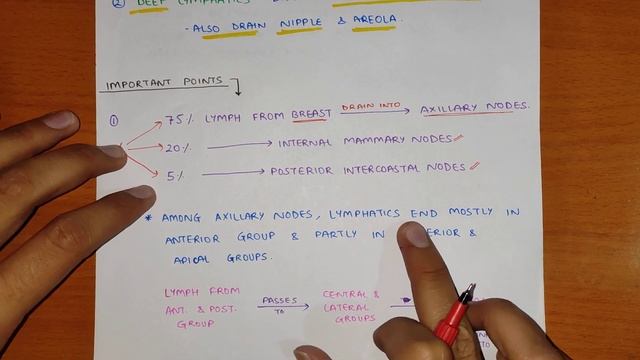 ② DEEP LYMPHATICS
- ALSO DRAIN NIPPLE & AREOLA.
IMPORTANT POINTS
① 75% LYMPH FROM BREAST DRAIN INTO → AXILLARY NODES.
20% → INTERNAL MAMMARY NODES
5% → POSTERIOR INTERCOASTAL NODES
* AMONG AXILLARY NODES, LYMPHATICS END MOSTLY IN
ANTERIOR GROUP & PARTLY IN ERIOR &
APICAL GROUPS.
LYMPH FROM PASSES CENTRAL &
ANT. & POST. TO → LATERAL
GROUP GROUPS
TO